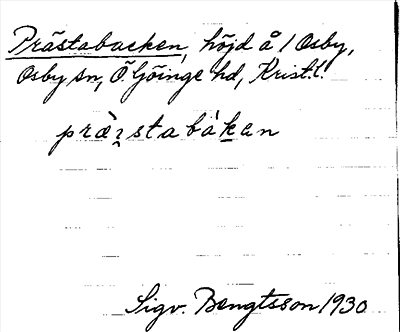 Prästabacken, höjd å 1 Osby,
Osby sn, Ö Göinge hd, Krist. l.
præ̀ɪ̯stabákan
Sigv. Bengtsson 1930